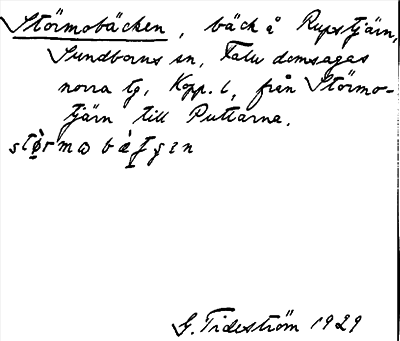 Störmobäcken, bäck å Rupstjärn,
Sundborns sn, Falu domsagas
norra tg, Kopp. l, från Störmo-
tjärn till Puttarna.
G. Tideström 1929